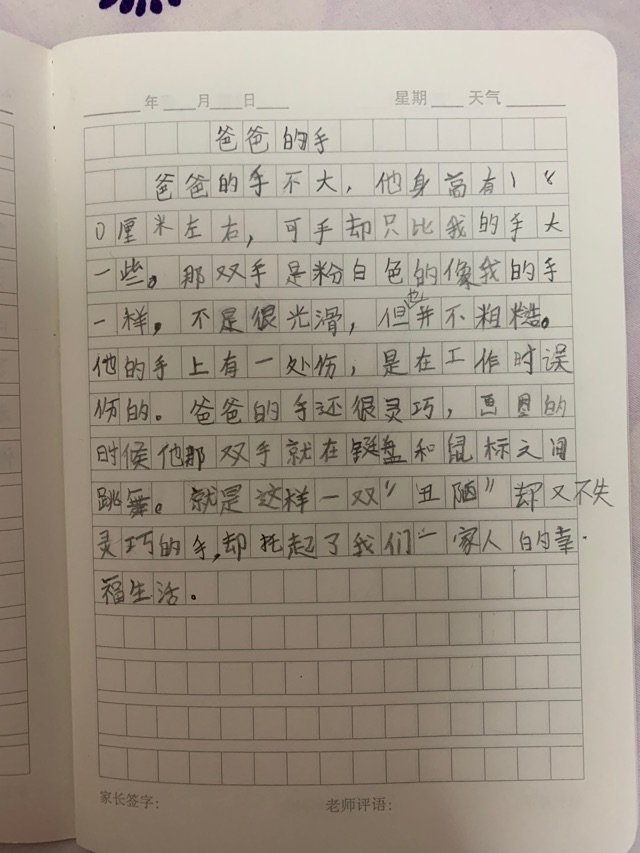 年 月 日 星期 天气
爸爸的手
爸爸的手不大，他身高有18
0厘米左右，可手却只比我的手大
一些。那双手是粉白色的像我的手
一样，不是很光滑，但也并不粗糙。
他的手上有一处伤，是在工作时误
伤的。爸爸的手还很灵巧，画图的
时候他那双手就在键盘和鼠标之间
跳舞。就是这样一双“丑陋”却又不失
灵巧的手，却托起了我们一家人的幸
福生活。
家长签字： 老师评语：